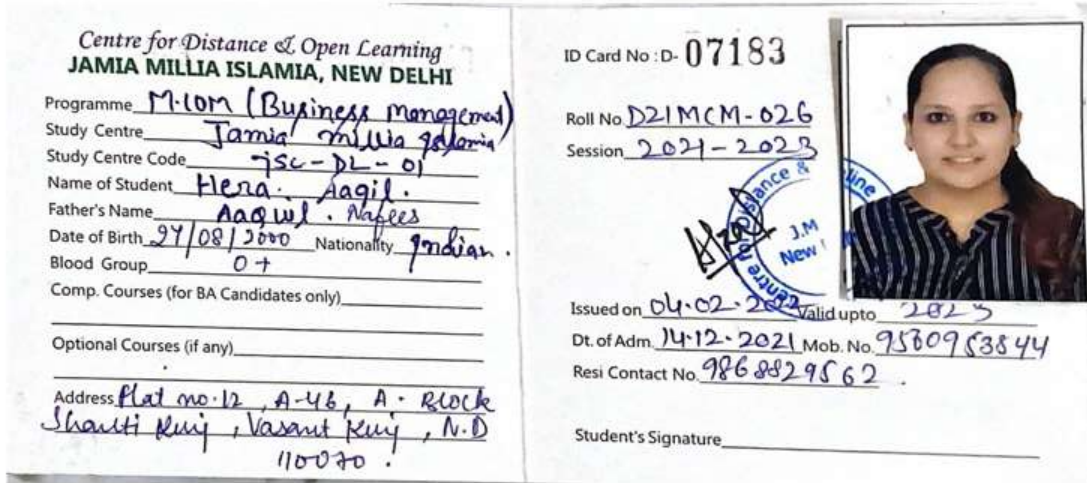 Centre for Distance & Open Learning
JAMIA MILLIA ISLAMIA, NEW DELHI
Programme M.COM (Business Management)
Study Centre Jamia Millia Islamia
Study Centre Code JSC-DL-01
Name of Student Hera. Aaqil.
Father's Name Aaqwl. Nafees
Date of Birth 27/08/2000 Nationality Indian.
Blood Group O+
Comp. Courses (for BA Candidates only)
Optional Courses (if any)
Address Flat no.12, A-46, A. Block
Shanti Kunj, Vasant Kunj, N.D
110070.
ID Card No : D- 07183
Roll No D21MCM-026
Session 2021-2023
Centre for Distance &
line
J.M
New
Issued on 04.02.2022 Valid upto 2023
Dt. of Adm. 14.12.2021 Mob. No. 9560953844
Resi Contact No. 9868829562.
Student's Signature